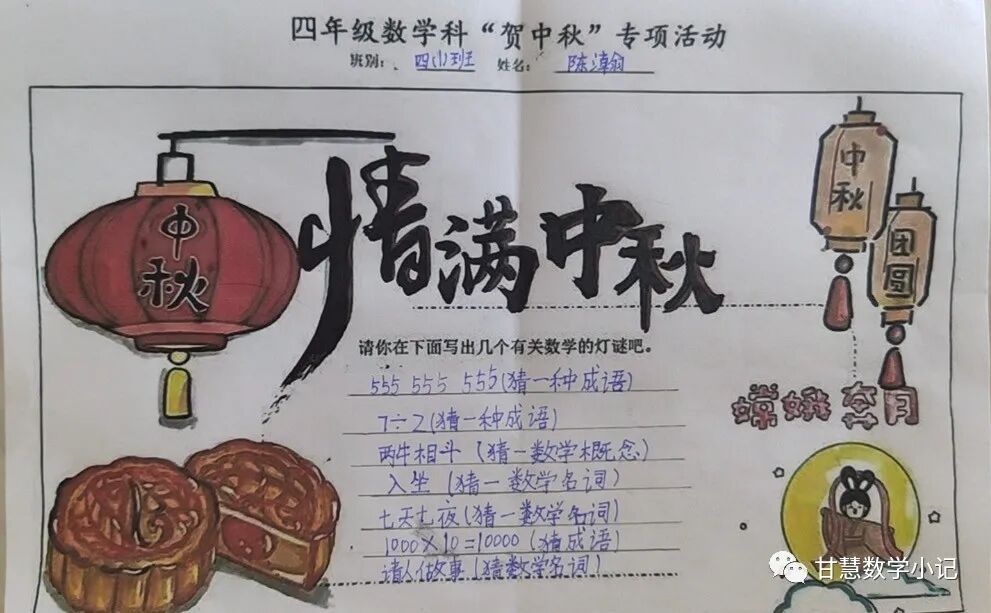 四年级数学科“贺中秋”专项活动
班别：四(1)班 姓名：陈漳翎
中秋
情满中秋
中秋
团圆
请你在下面写出几个有关数学的灯谜吧。
555 555 555(猜一种成语)
7÷2(猜一种成语)
两牛相斗(猜一数学概念)
入坐(猜一数学名词)
七天七夜(猜一数学名词)
1000×10=10000(猜成语)
请人做事(猜数学名词)
嫦娥奔月
甘慧数学小记